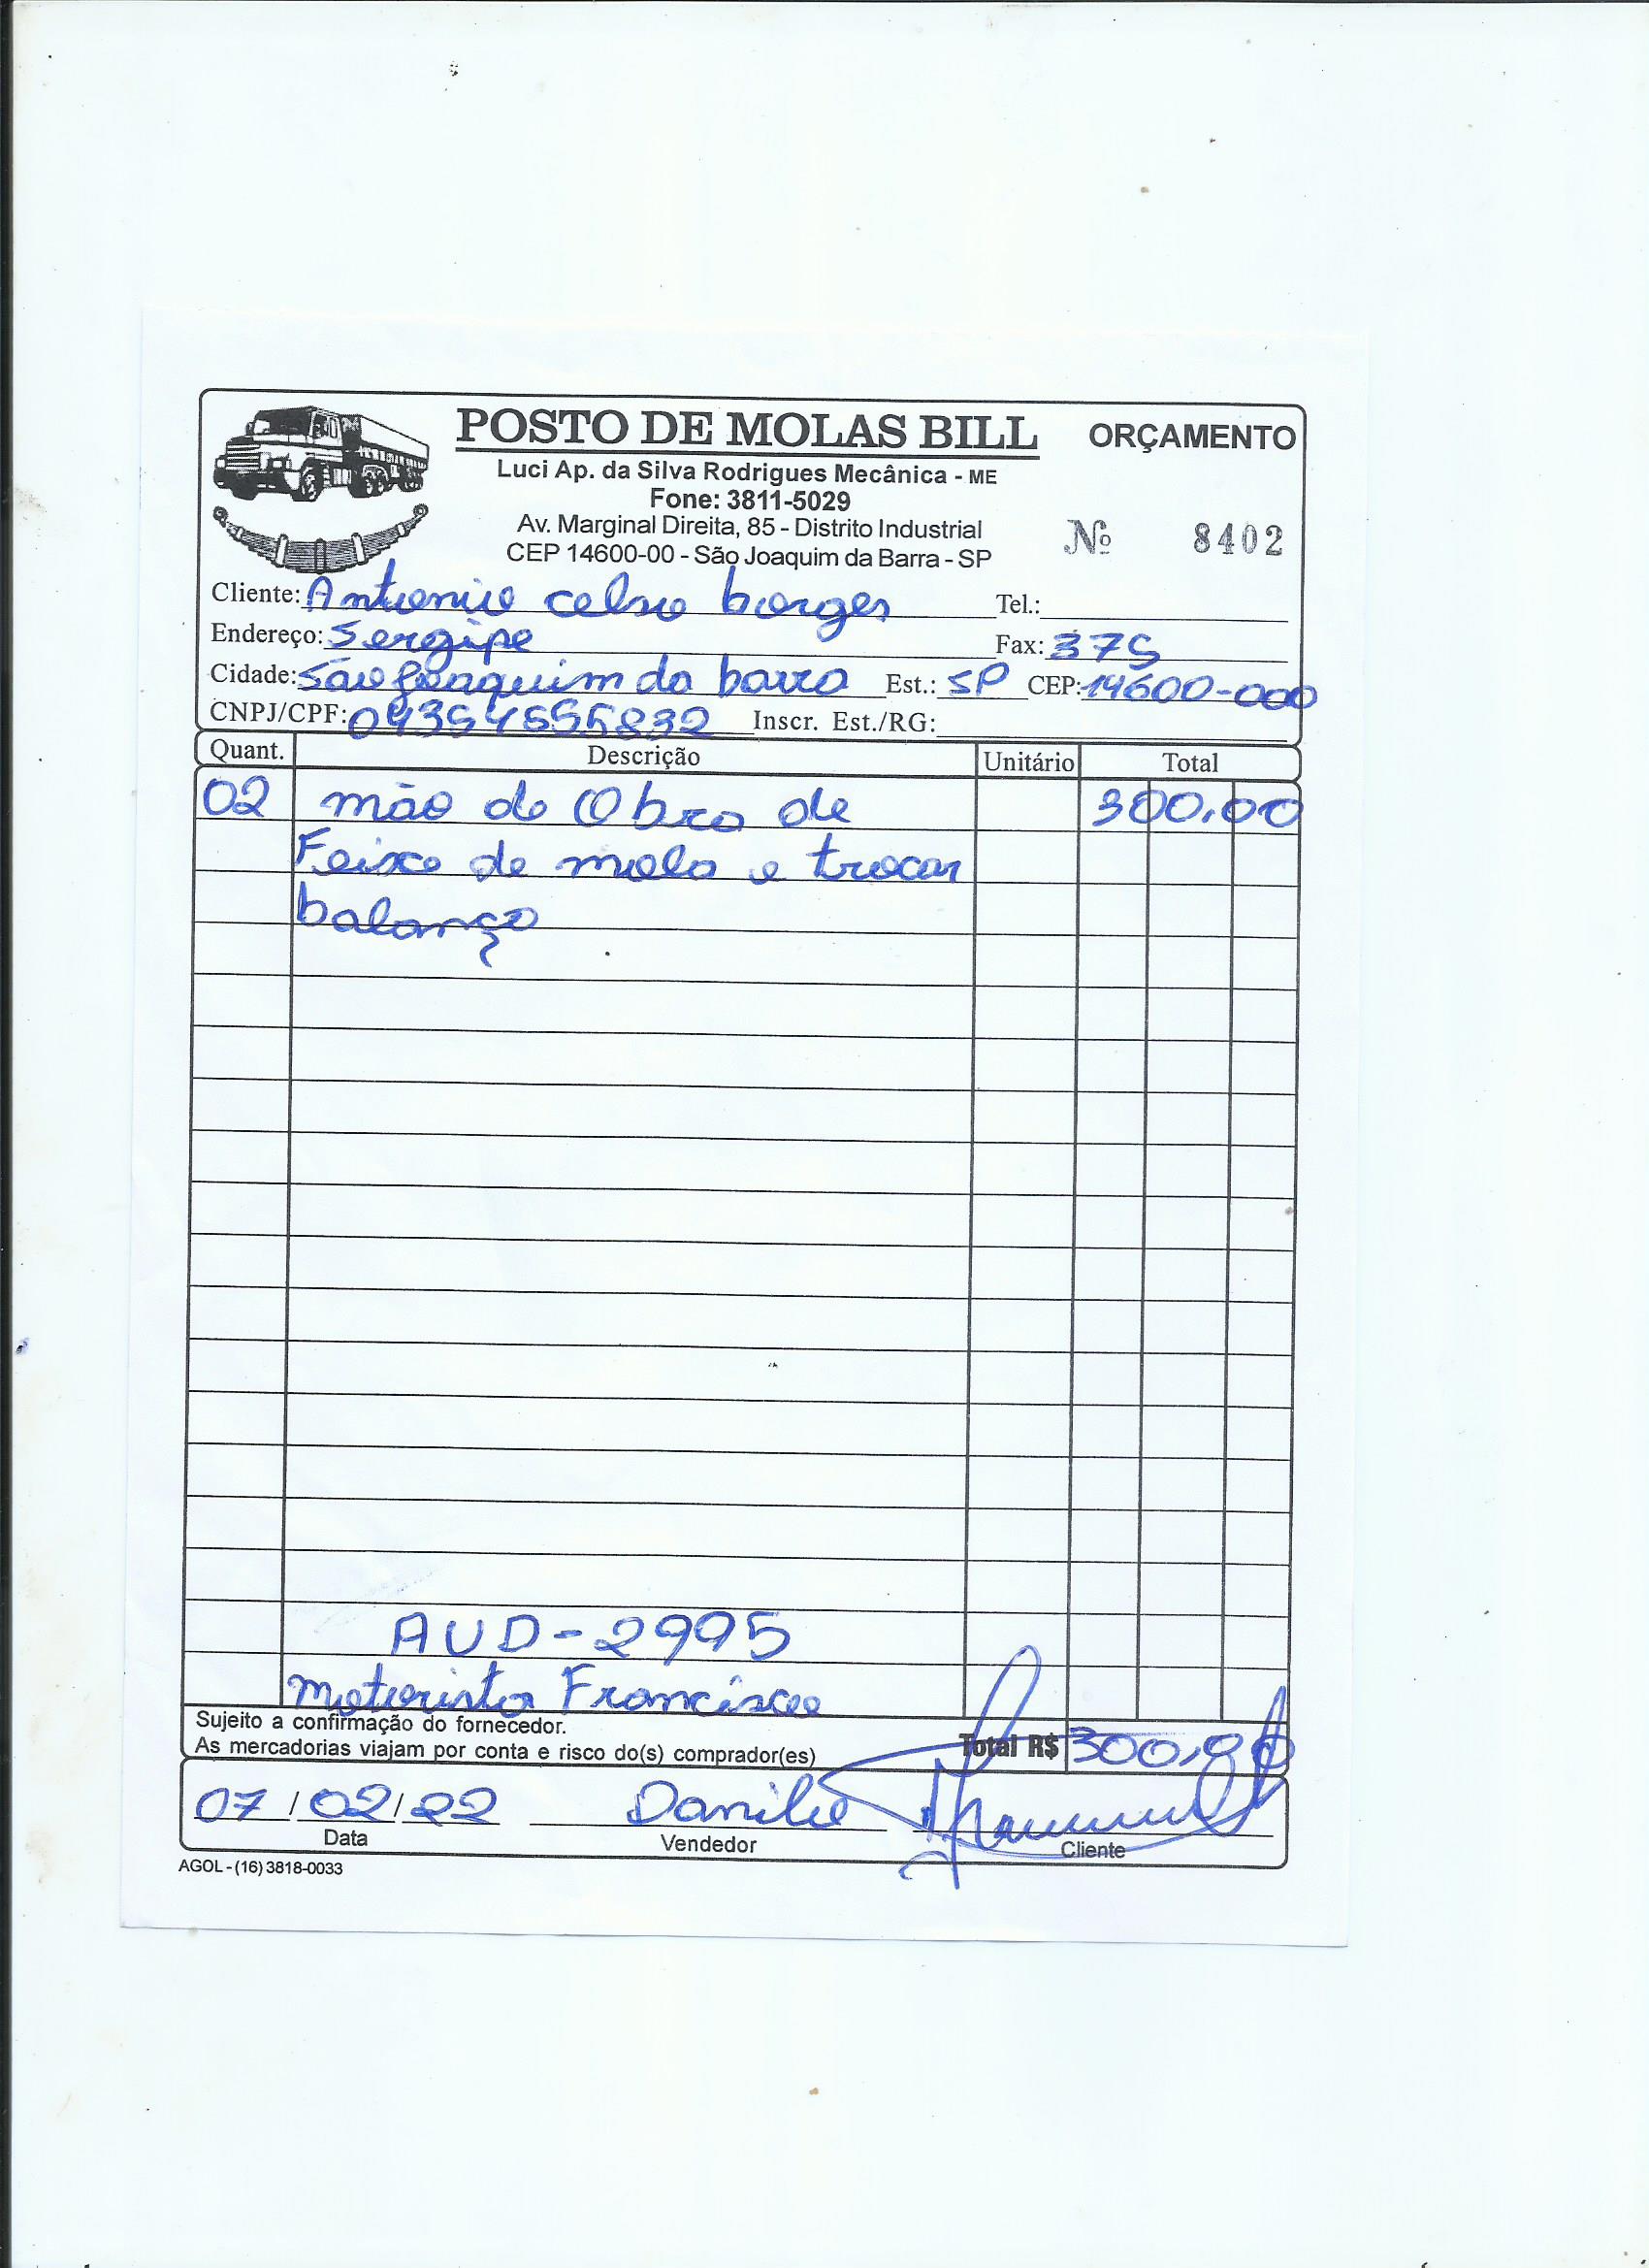 POSTO DE MOLAS BILL ORÇAMENTO
Luci Ap. da Silva Rodrigues Mecânica - ME
Fone: 3811-5029
Av. Marginal Direita, 85 - Distrito Industrial
CEP 14600-00 - São Joaquim da Barra - SP
Nº 8402
Cliente: Antonio celso borges Tel.:
Endereço: Sergipe Fax: 375
Cidade: São Joaquim da barra Est.: SP CEP: 14600-000
CNPJ/CPF: 04354555832 Inscr. Est./RG:
Quant. Descrição Unitário Total
02 mão de Obra de 300,00
Feixe de mola e trocar
balanço
AUD-2995
motorista Francisco
Sujeito a confirmação do fornecedor.
As mercadorias viajam por conta e risco do(s) comprador(es) Total R$ 300,00
07/02/22 Danilo
Data Vendedor Cliente
AGOL - (16) 3818-0033